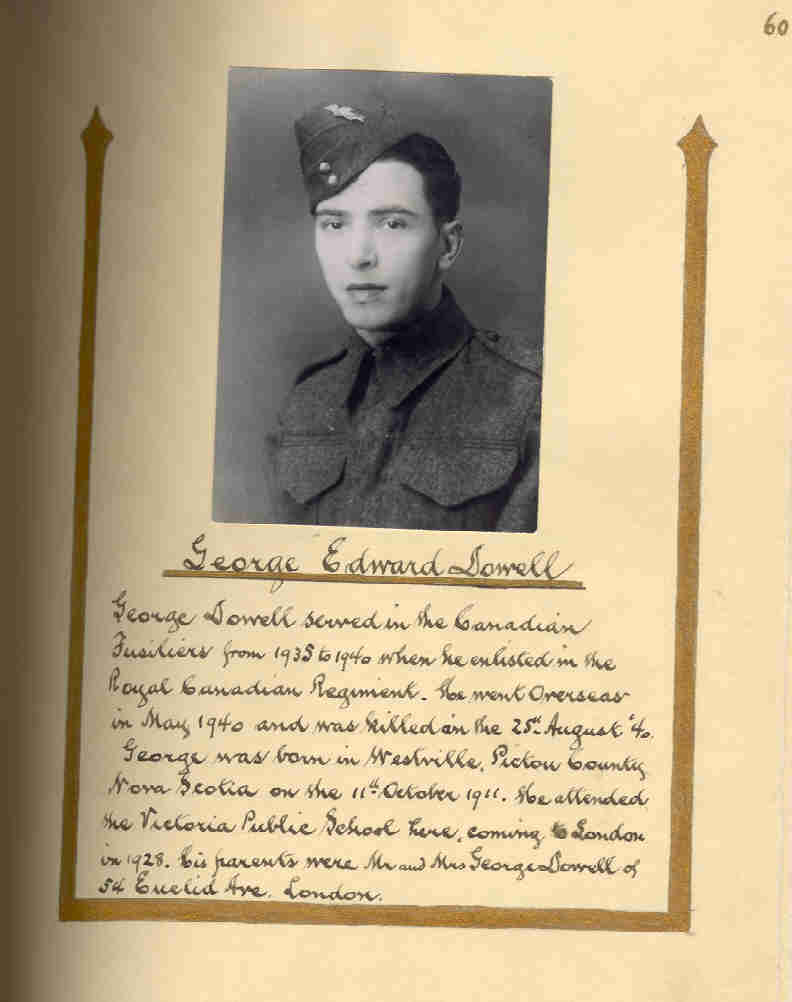 60
George Edward Dowell
George Dowell served in the Canadian
Fusiliers from 1935 to 1940 when he enlisted in the
Royal Canadian Regiment. He went Overseas
in May 1940 and was killed on the 25th August '40.
George was born in Westville, Pictou County
Nova Scotia on the 11th October 1911. He attended
the Victoria Public School here, coming to London
in 1928. his parents were Mr and Mrs George Dowell of
54 Euclid Ave. London.